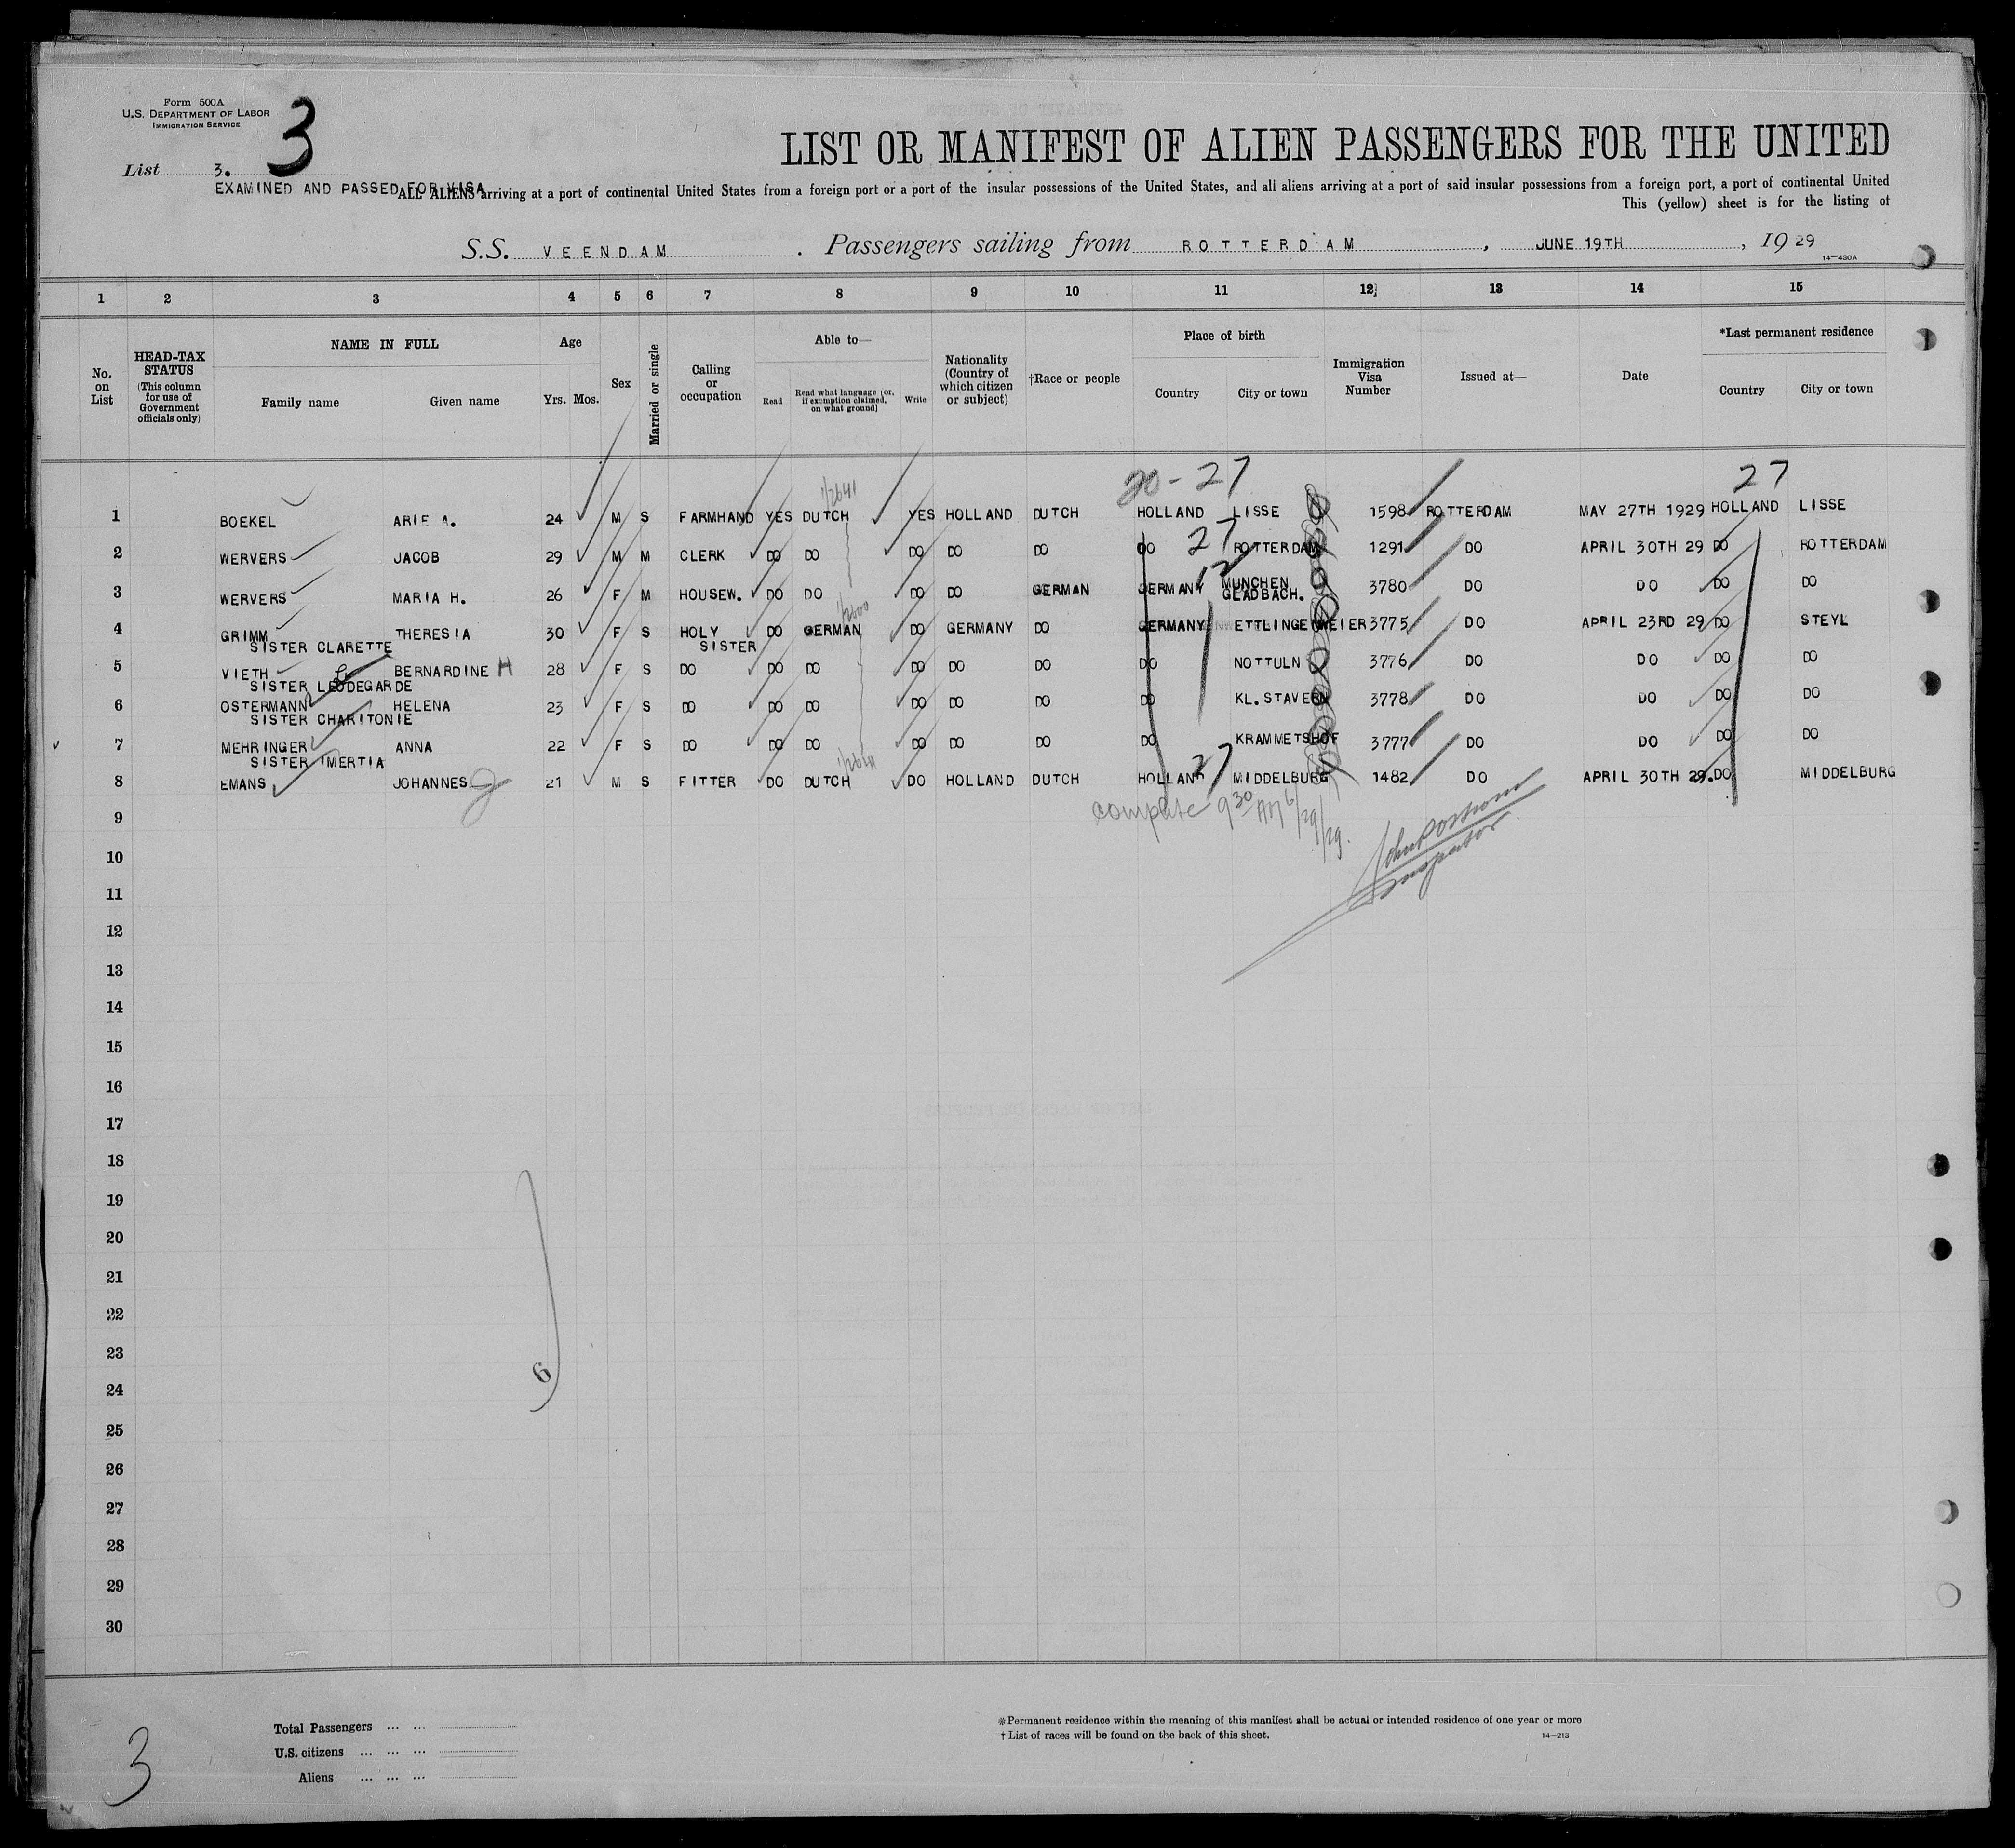 Form 500A
U.S. DEPARTMENT OF LABOR
IMMIGRATION SERVICE
3
List 3.
LIST OR MANIFEST OF ALIEN PASSENGERS FOR THE UNITED
EXAMINED AND PASSED FOR VISA
ALL ALIENS arriving at a port of continental United States from a foreign port or a port of the insular possessions of the United States, and all aliens arriving at a port of said insular possessions from a foreign port, a port of continental United
This (yellow) sheet is for the listing of
S.S. VEENDAM . Passengers sailing from ROTTERDAM , JUNE 19TH , 1929
14—430A
1 2 3 4 5 6 7 8 9 10 11 12 13 14 15
No. on List
HEAD-TAX STATUS (This column for use of Government officials only)
NAME IN FULL
Family name Given name
Age
Yrs. Mos.
Sex
Married or single
Calling or occupation
Able to—
Read Read what language (or, if exemption claimed, on what ground) Write
Nationality (Country of which citizen or subject)
†Race or people
Place of birth
Country City or town
Immigration Visa Number
Issued at—
Date
*Last permanent residence
Country City or town
20-27 27
1/2641
1 BOEKEL ARIE A. 24 M S FARMHAND YES DUTCH YES HOLLAND DUTCH HOLLAND LISSE 1598 ROTTERDAM MAY 27TH 1929 HOLLAND LISSE
2 WERVERS JACOB 29 M M CLERK DO DO DO DO DO DO 27 ROTTERDAM 1291 DO APRIL 30TH 29 DO ROTTERDAM
3 WERVERS MARIA H. 26 F M HOUSEW. DO DO DO DO GERMAN GERMANY 12 MUNCHEN GLADBACH. 3780 DO DO DO DO
1/2600
4 GRIMM THERESIA 30 F S HOLY SISTER DO GERMAN DO GERMANY DO GERMANY ETTLINGENWEIER 3775 DO APRIL 23RD 29 DO STEYL
SISTER CLARETTE
5 VIETH BERNARDINE H 28 F S DO DO DO DO DO DO DO NOTTULN 3776 DO DO DO DO
SISTER LEODEGARDE
6 OSTERMANN HELENA 23 F S DO DO DO DO DO DO DO KL. STAVERN 3778 DO DO DO DO
SISTER CHARITONIE
7 MEHRINGER ANNA 22 F S DO DO DO DO DO DO DO KRAMMETSHOF 3777 DO DO DO DO
SISTER IMERTIA
1/2641
8 EMANS JOHANNES J 21 M S FITTER DO DUTCH DO HOLLAND DUTCH HOLLAND 27 MIDDELBURG 1482 DO APRIL 30TH 29. DO MIDDELBURG
complete 9 30 AM 6/29/29.
Inspector
9
10
11
12
13
14
15
16
17
18
19
20
21
22
23
24
25
26
27
28
29
30
6
Total Passengers ... ...
U.S. citizens ... ... ...
Aliens ... ... ...
*Permanent residence within the meaning of this manifest shall be actual or intended residence of one year or more
†List of races will be found on the back of this sheet.
14—213
3